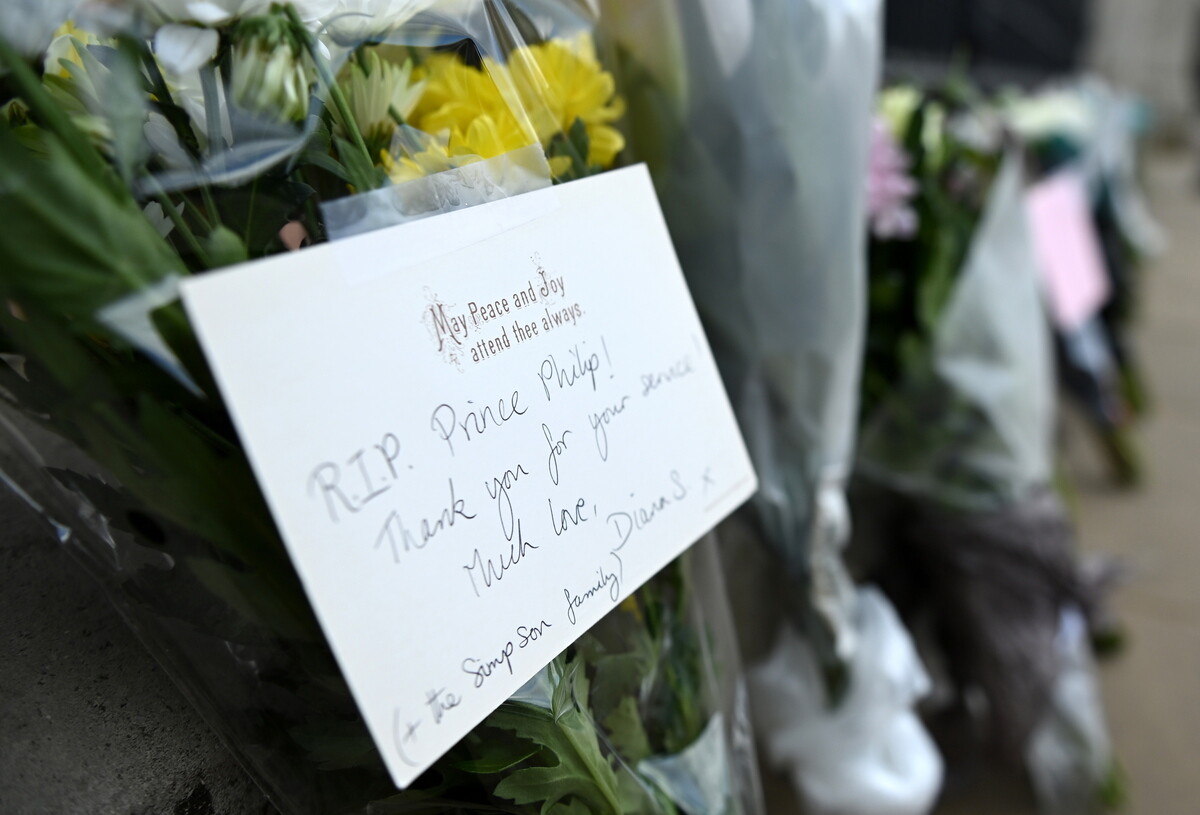 May Peace and Joy
attend thee always.
R.I.P. Prince Philip!
Thank you for your service!
Much love,
Diana S. x
(+ the Simpson family)